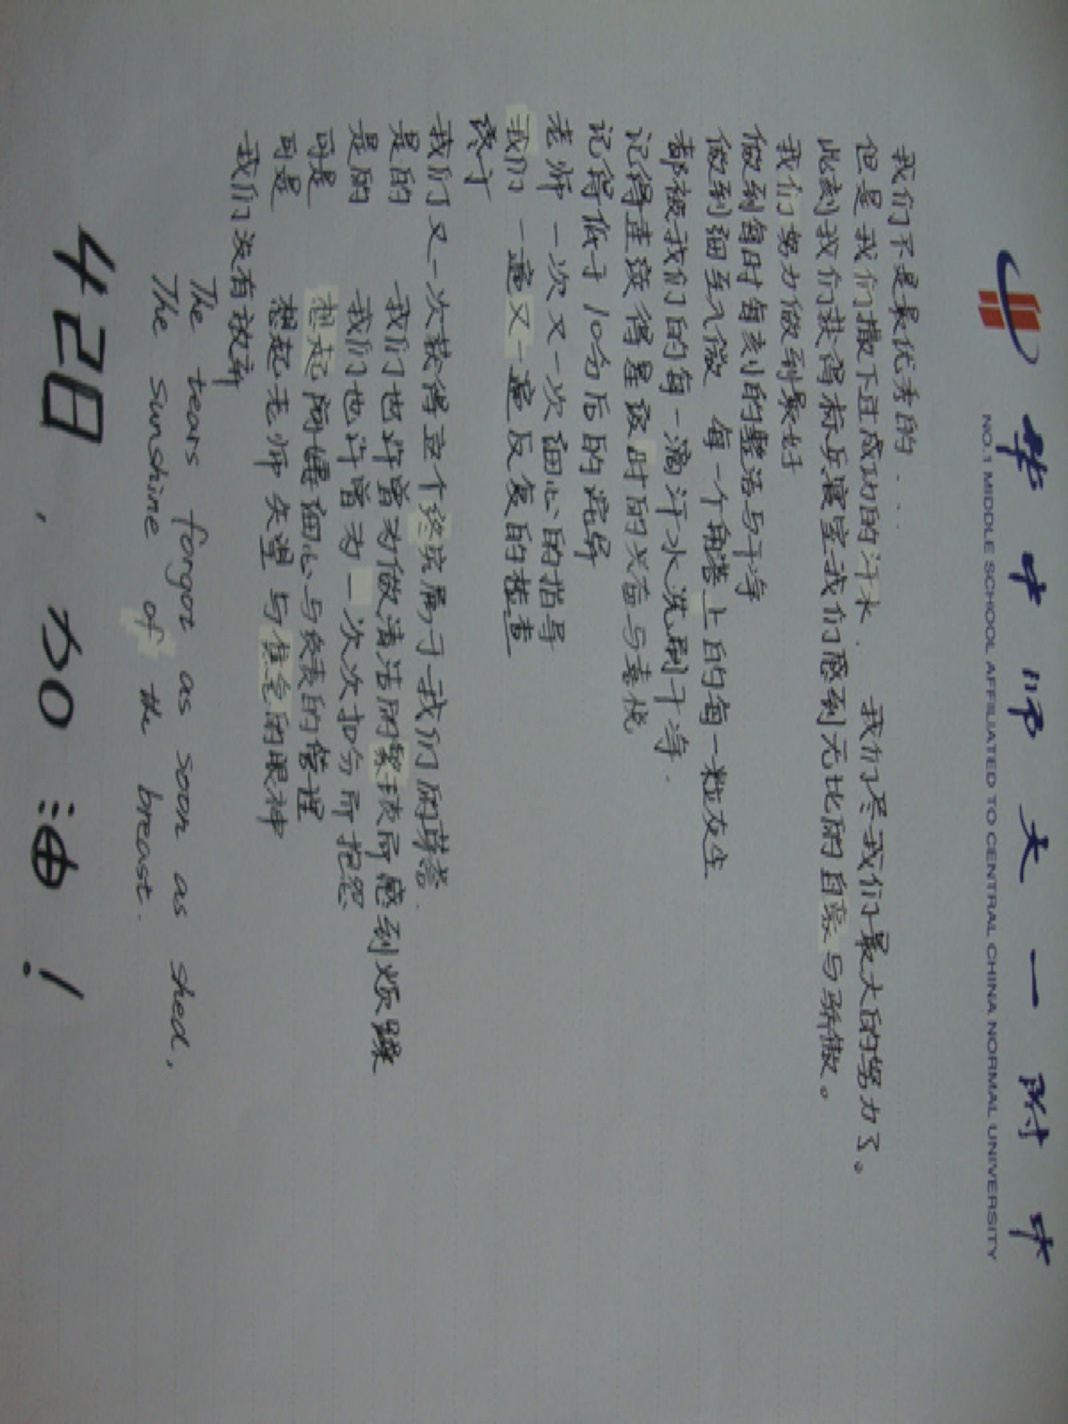 华中师大一附中
NO.1 MIDDLE SCHOOL AFFILIATED TO CENTRAL CHINA NORMAL UNIVERSITY
我们不是最优秀的...
但是我们撒下过成功的汗水. 我们尽我们最大的努力了。
此刻我们获得标兵寝室我们感到无比的自豪与骄傲。
我们努力做到最好
做到每时每刻的整洁与干净
做到细至入微 每一个角落上的每一粒灰尘
都被我们的每一滴汗水洗刷干净.
记得连续得星级时的兴奋与喜悦
记得低于10分后的
老师一次又一次细心的指导
我们一遍又一遍反复的检查
终于
我们又一次获得立个终究属于我们的荣誉.
是的 我们也许曾为做清洁的繁技而感到烦躁
是的 我们也许曾为一次次扣分而抱怨
可是 想起 细心与 的管理
可是 想起老师失望与焦急的眼神
我们没有放弃
The tears forgot as soon as shed,
The sunshine of the breast.
428, 加油!